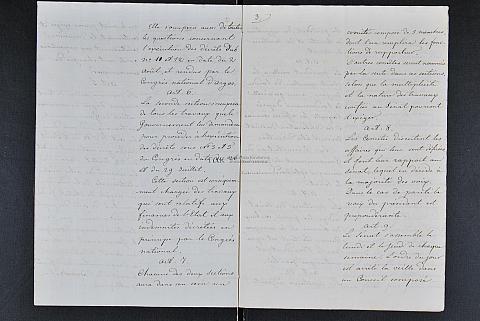 Elle s'occupera aussi de toutes
les questions concernant
l'exécution des décrets
No 11 et 12 en date du 2
Août, et rendus par le
Congrès national d'Argos.
Art. 6.
La seconde section s'occupera
de tous les travaux que le
Gouvernement lui demandera
pour procéder à l'exécution
des décrets sous No 3 et 5
du Congrès en date du 26
et du 29 Juillet.
Cette section est conséquem
ment chargée des travaux
qui sont relatifs aux
finances de l'Etat et aux
indemnités décrétées en
principe par le Congrès
national.
Art. 7.
Chacune des deux sections
aura dans son sein un
3
comité composé de 3 membres
dont l'un remplira les fonc
tions de rapporteur.
D'autres comités seront nommés
par la suite dans ces sections,
selon que la multiplicité
et la nature des travaux
confiés au Sénat pourront
l'exiger.
Art. 8.
Les Comités discutent les
affaires qui leur sont déférées
et font leur rapport au
Sénat, lequel en décide à
la majorité des voix.
Dans le cas de parité la
voix du président est
prépondérante.
Art. 9.
Le Sénat s'assemble le
lundi et le Jeudi de chaque
semaine. L'ordre du jour
est arrêté la veille dans
un Conseil composé